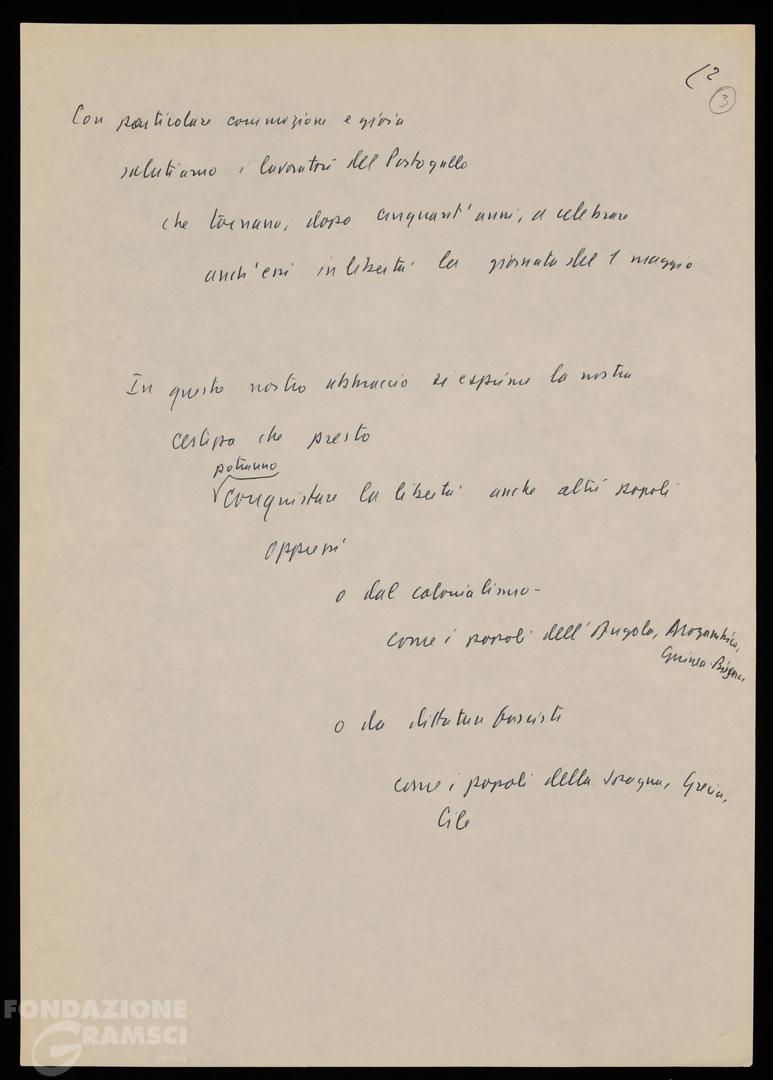 2
3
Con particolare commozione e gioia
salutiamo i lavoratori del Portogallo
che tornano, dopo cinquant'anni, a celebrare
anch'essi in libertà la giornata del 1 maggio
In questo nostro abbraccio si esprime la nostra
certezza che presto
potranno
conquistare la libertà anche altri popoli
oppressi
o dal colonialismo -
come i popoli dell'Angola, Mozambico,
Guinea-Bissau
o da dittature fasciste
come i popoli della Spagna, Grecia,
Cile
FONDAZIONE
GRAMSCI
onlus